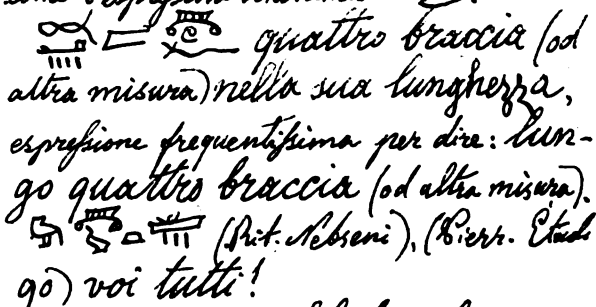 quattro braccia (od
altra misura) nella sua lunghezza,
espressione frequentissima per dire: lun-
go quattro braccia (od altra misura).
(Rit. Nebseni), (Pierr. Étud.
go) voi tutti!